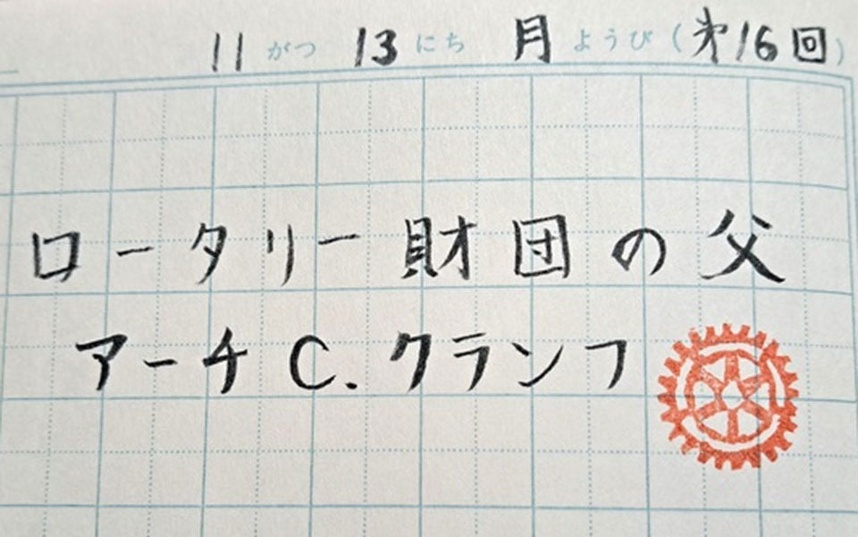 11 がつ 13 にち 月 ようび (第16回)
ロータリー財団の父
アーチC.クランフ